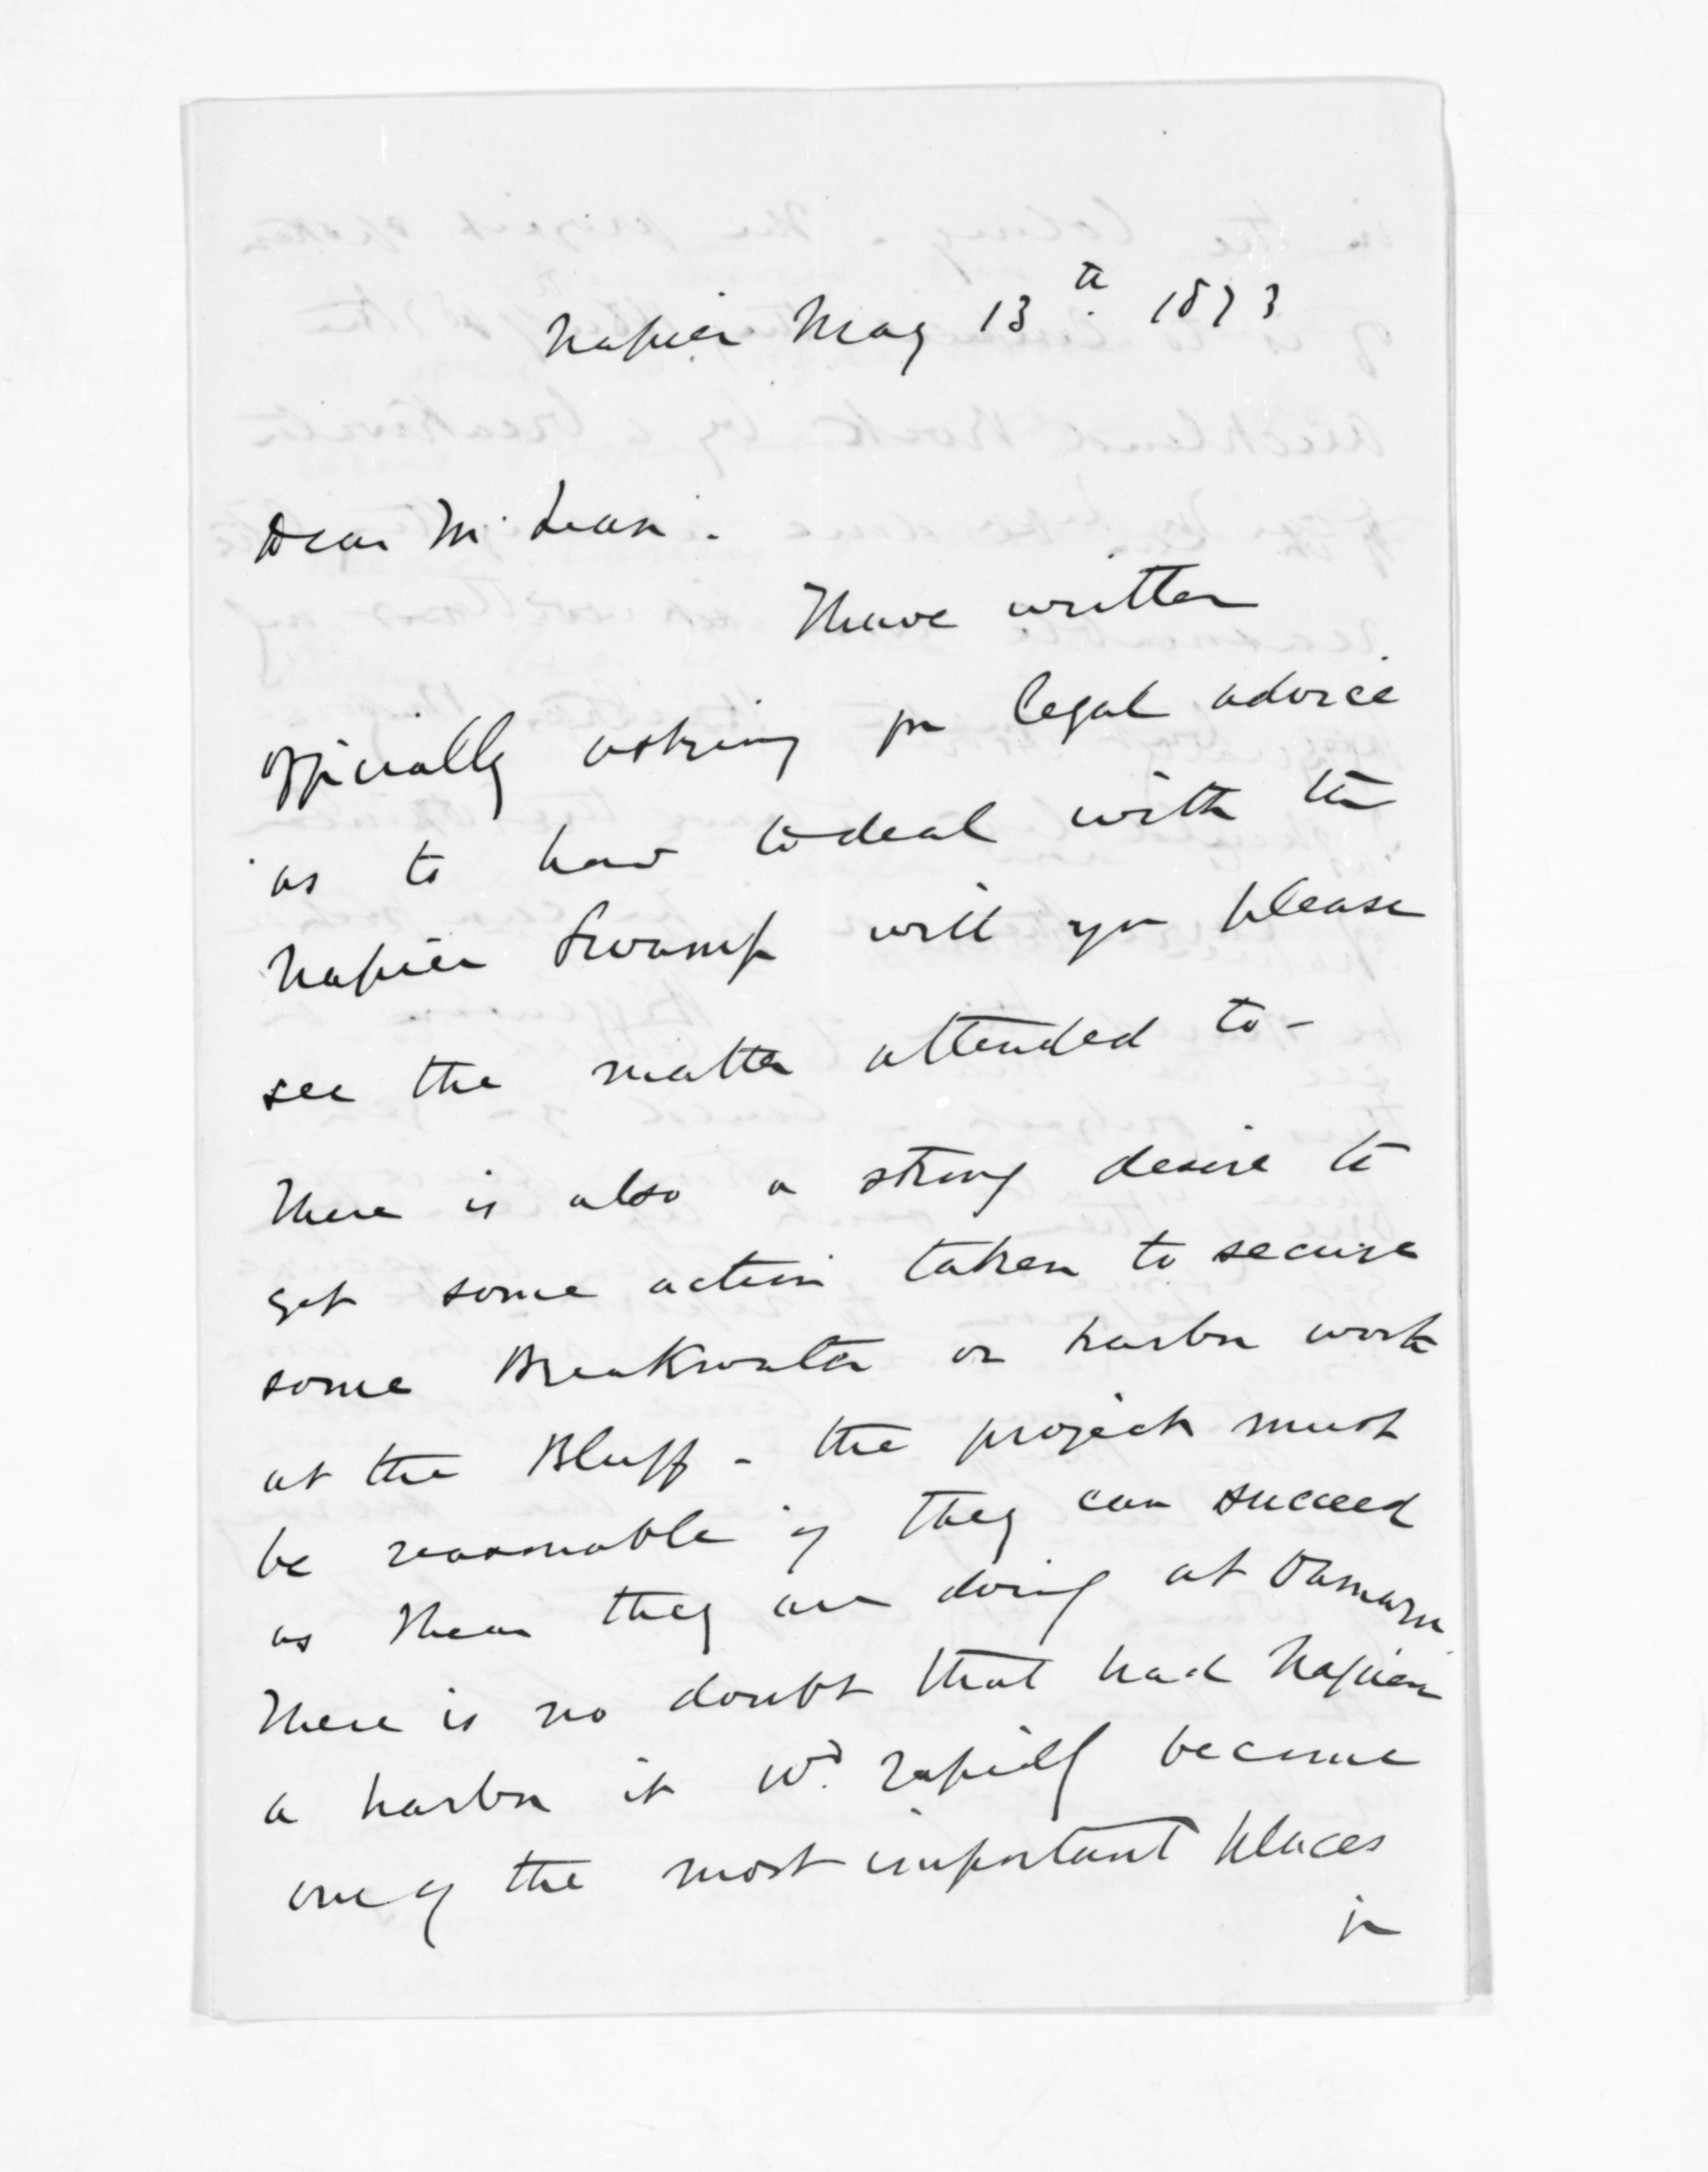 Napier May 13th. 1873
Dear McLean.
I have written
officially asking for legal advice
as to how to deal with the
Napier Swamp will you please
see the matter attended to -
There is also a strong desire to
get some action taken to secure
some Breakwater or harbor work
at the Bluff - the project must
be reasonable if they can succeed
as I hear they are doing at Oamaru
There is no doubt that had Napier
a harbor it wd. rapidly become
one of the most important places
in